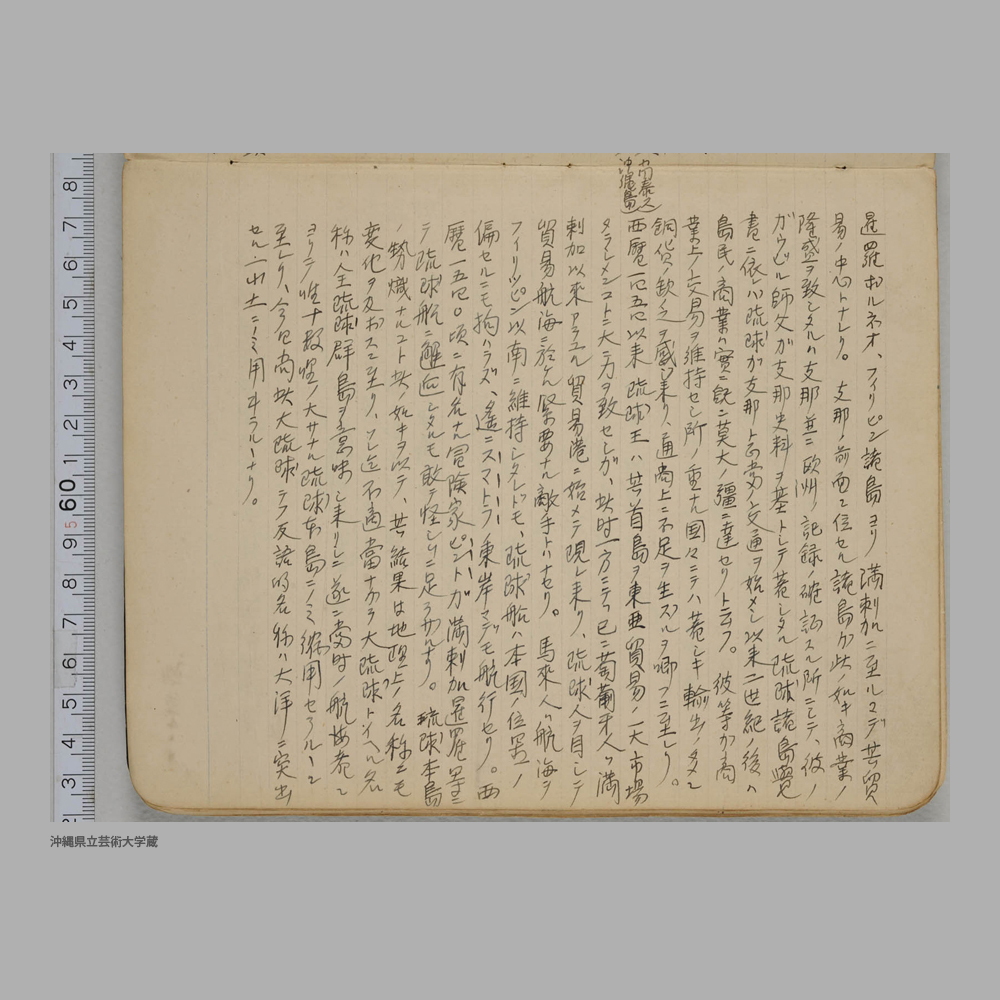 暹羅ボルネオ、フィリピン諸島ヨリ満剌加ニ至ルマデ其貿
易ノ中心トナレリ。支那ノ前面ニ位セル諸島ガ此ノ如キ商業ノ
隆盛ヲ致シタルハ支那並ニ欧州ノ記録ノ確証スル所ニシテ、彼ノ
ガウビル師父ガ支那史料ヲ基トシテ著シタル琉球諸島覺
書ニ依レバ琉球ガ支那ト正當ノ交通ヲ始メシ以来二世紀ノ後ハ
島民ノ商業ハ實ニ既ニ莫大ノ疆ニ達セリト云フ。彼等ガ商
業上ノ交易ヲ維持セシ所ノ重ナル国々ニテハ著シキ輸出ノタメニ
銅貨ノ欠乏ヲ感ジ来リ、通商上ニ不足ヲ生ズルヲ唧フニ至レリ。
尚泰久
沖縄島
西暦一四五四以来琉球王ハ其首島ヲ東亜貿易ノ一大市場
タラシメンコトニ大ニ力ヲ致セシガ、此時一方ニテハ已ニ葡萄牙人ハ満
剌加以来アラユル貿易港ニ始メテ現レ来リ、琉球人ヲ目シテ
貿易航海ニ於ケル緊要ナル敵手トハナセリ。馬来人ハ航海ヲ
フィリッピン以南ニ維持シタレドモ、琉球船ハ本国ノ位置ノ
偏セルニモ拘ハラズ、遙ニスマトラノ東岸マデモ航行セリ。西
暦一五四〇頃ニ有名ナル冒険家ピントガ満剌加暹羅等ニ
テ琉球船ニ邂逅シタルモ敢テ怪シムニ足ラザルナリ。琉球本島
ノ勢熾ナルコト此ノ如キヲ以テ、其結果は地理上ノ名称ニモ
変化ヲ及ボスニ至リ、ソレ迄不適當ナガラ大琉球トイヘル名
称ハ全琉球群島ヲ意味シ来リシニ遂ニ當時ノ航海者ニ
ヨリテノ性十数堭ノ大サナル琉球本島ニノミ縮用セラルヽニ
至レリ、今日尚此大琉球テフ反語的名称ハ大洋ニ突出
セル一小土ニノミ用ヰラルヽナリ。
8 7 6 5 4 3 2 1 60 9 8 7 6 5 4 3
沖縄県立芸術大学蔵